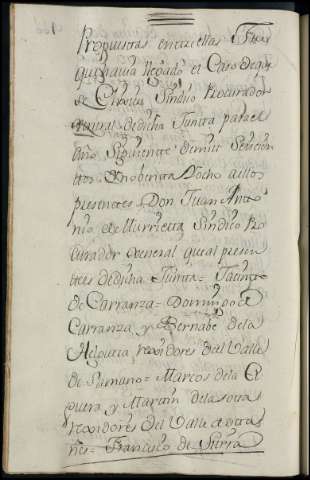 Propuestas entre ellas Fue
que havia llegado el Caso de que
se Eligiese Sindico Procurador
General de dicha Junta para el
año Siguiente de mil Setecien
tos Y noventa Y ocho a los
presentes Don Juan Anto
nio de Murrieta Sindico Pro
curador General que al presen
te es de dicha Junta = Jacinto
de Carranza = Domingo de
Carranza y Bernabe de la
Helguera rexidores del Valle
de Somano = Marcos de la Q
uadra y Martin de la sota
rexidores del Valle de otra
ñes = Francisco de Sierra